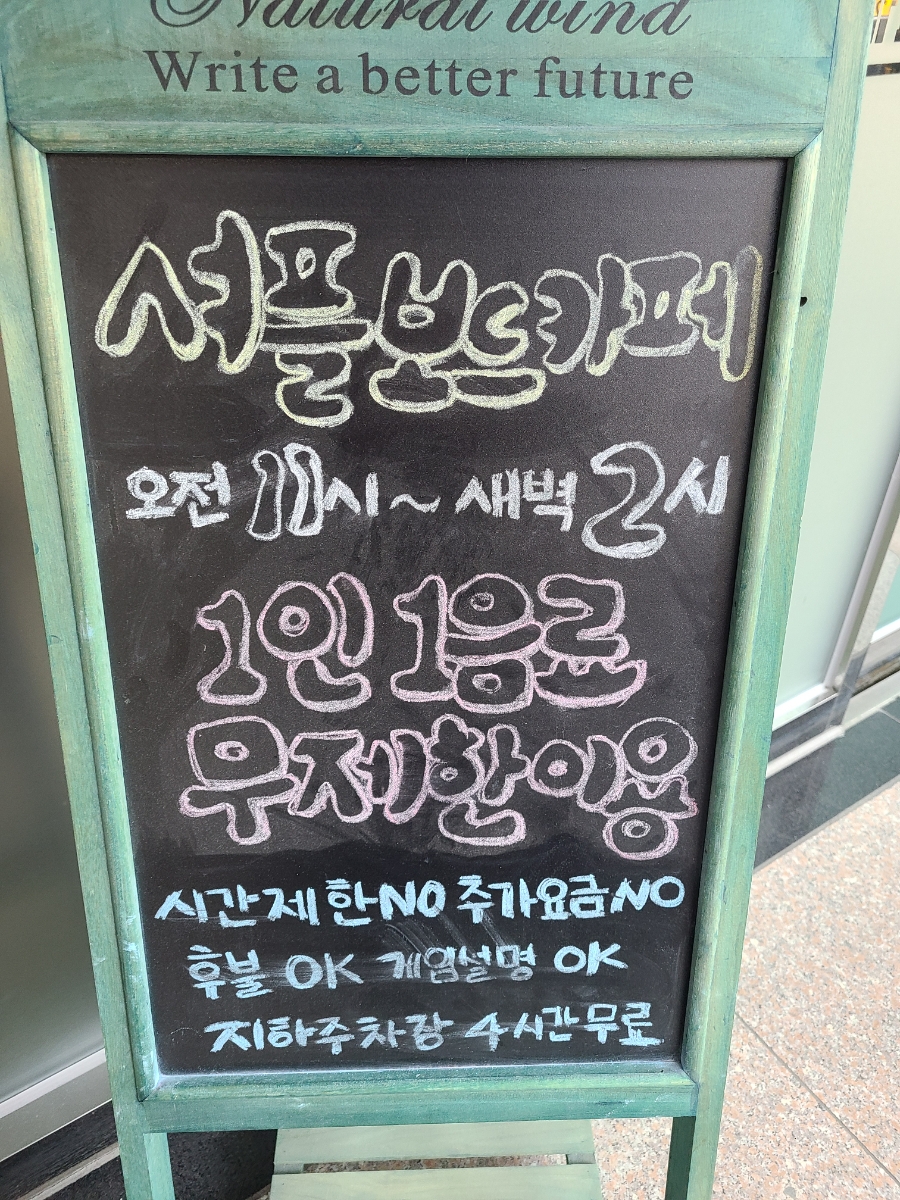 Natural wind
Write a better future
셔플보드카페
오전 11시~새벽 2시
1인 1음료
무제한이용
시간제한NO 추가요금NO
후불 OK 게임설명 OK
지하주차장 4시간무료